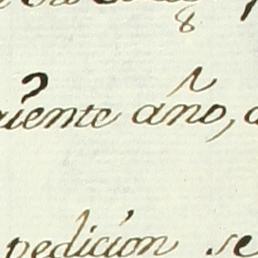 8
uiente año,
pedicion se